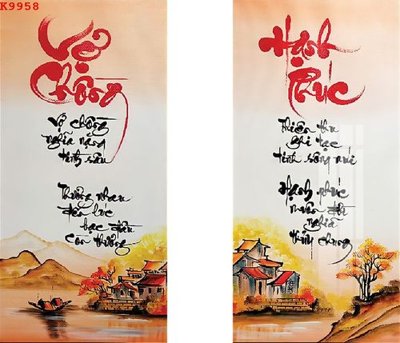 K9958
Vợ
Chồng
Vợ chồng
nghĩa nặng
tình sâu
Thương nhau
đến lúc
bạc đầu
còn thương
Hạnh
Phúc
Thiên thu
ghi tạc
tình sông núi
Hạnh phúc
muôn đời
nghĩa
thủy chung